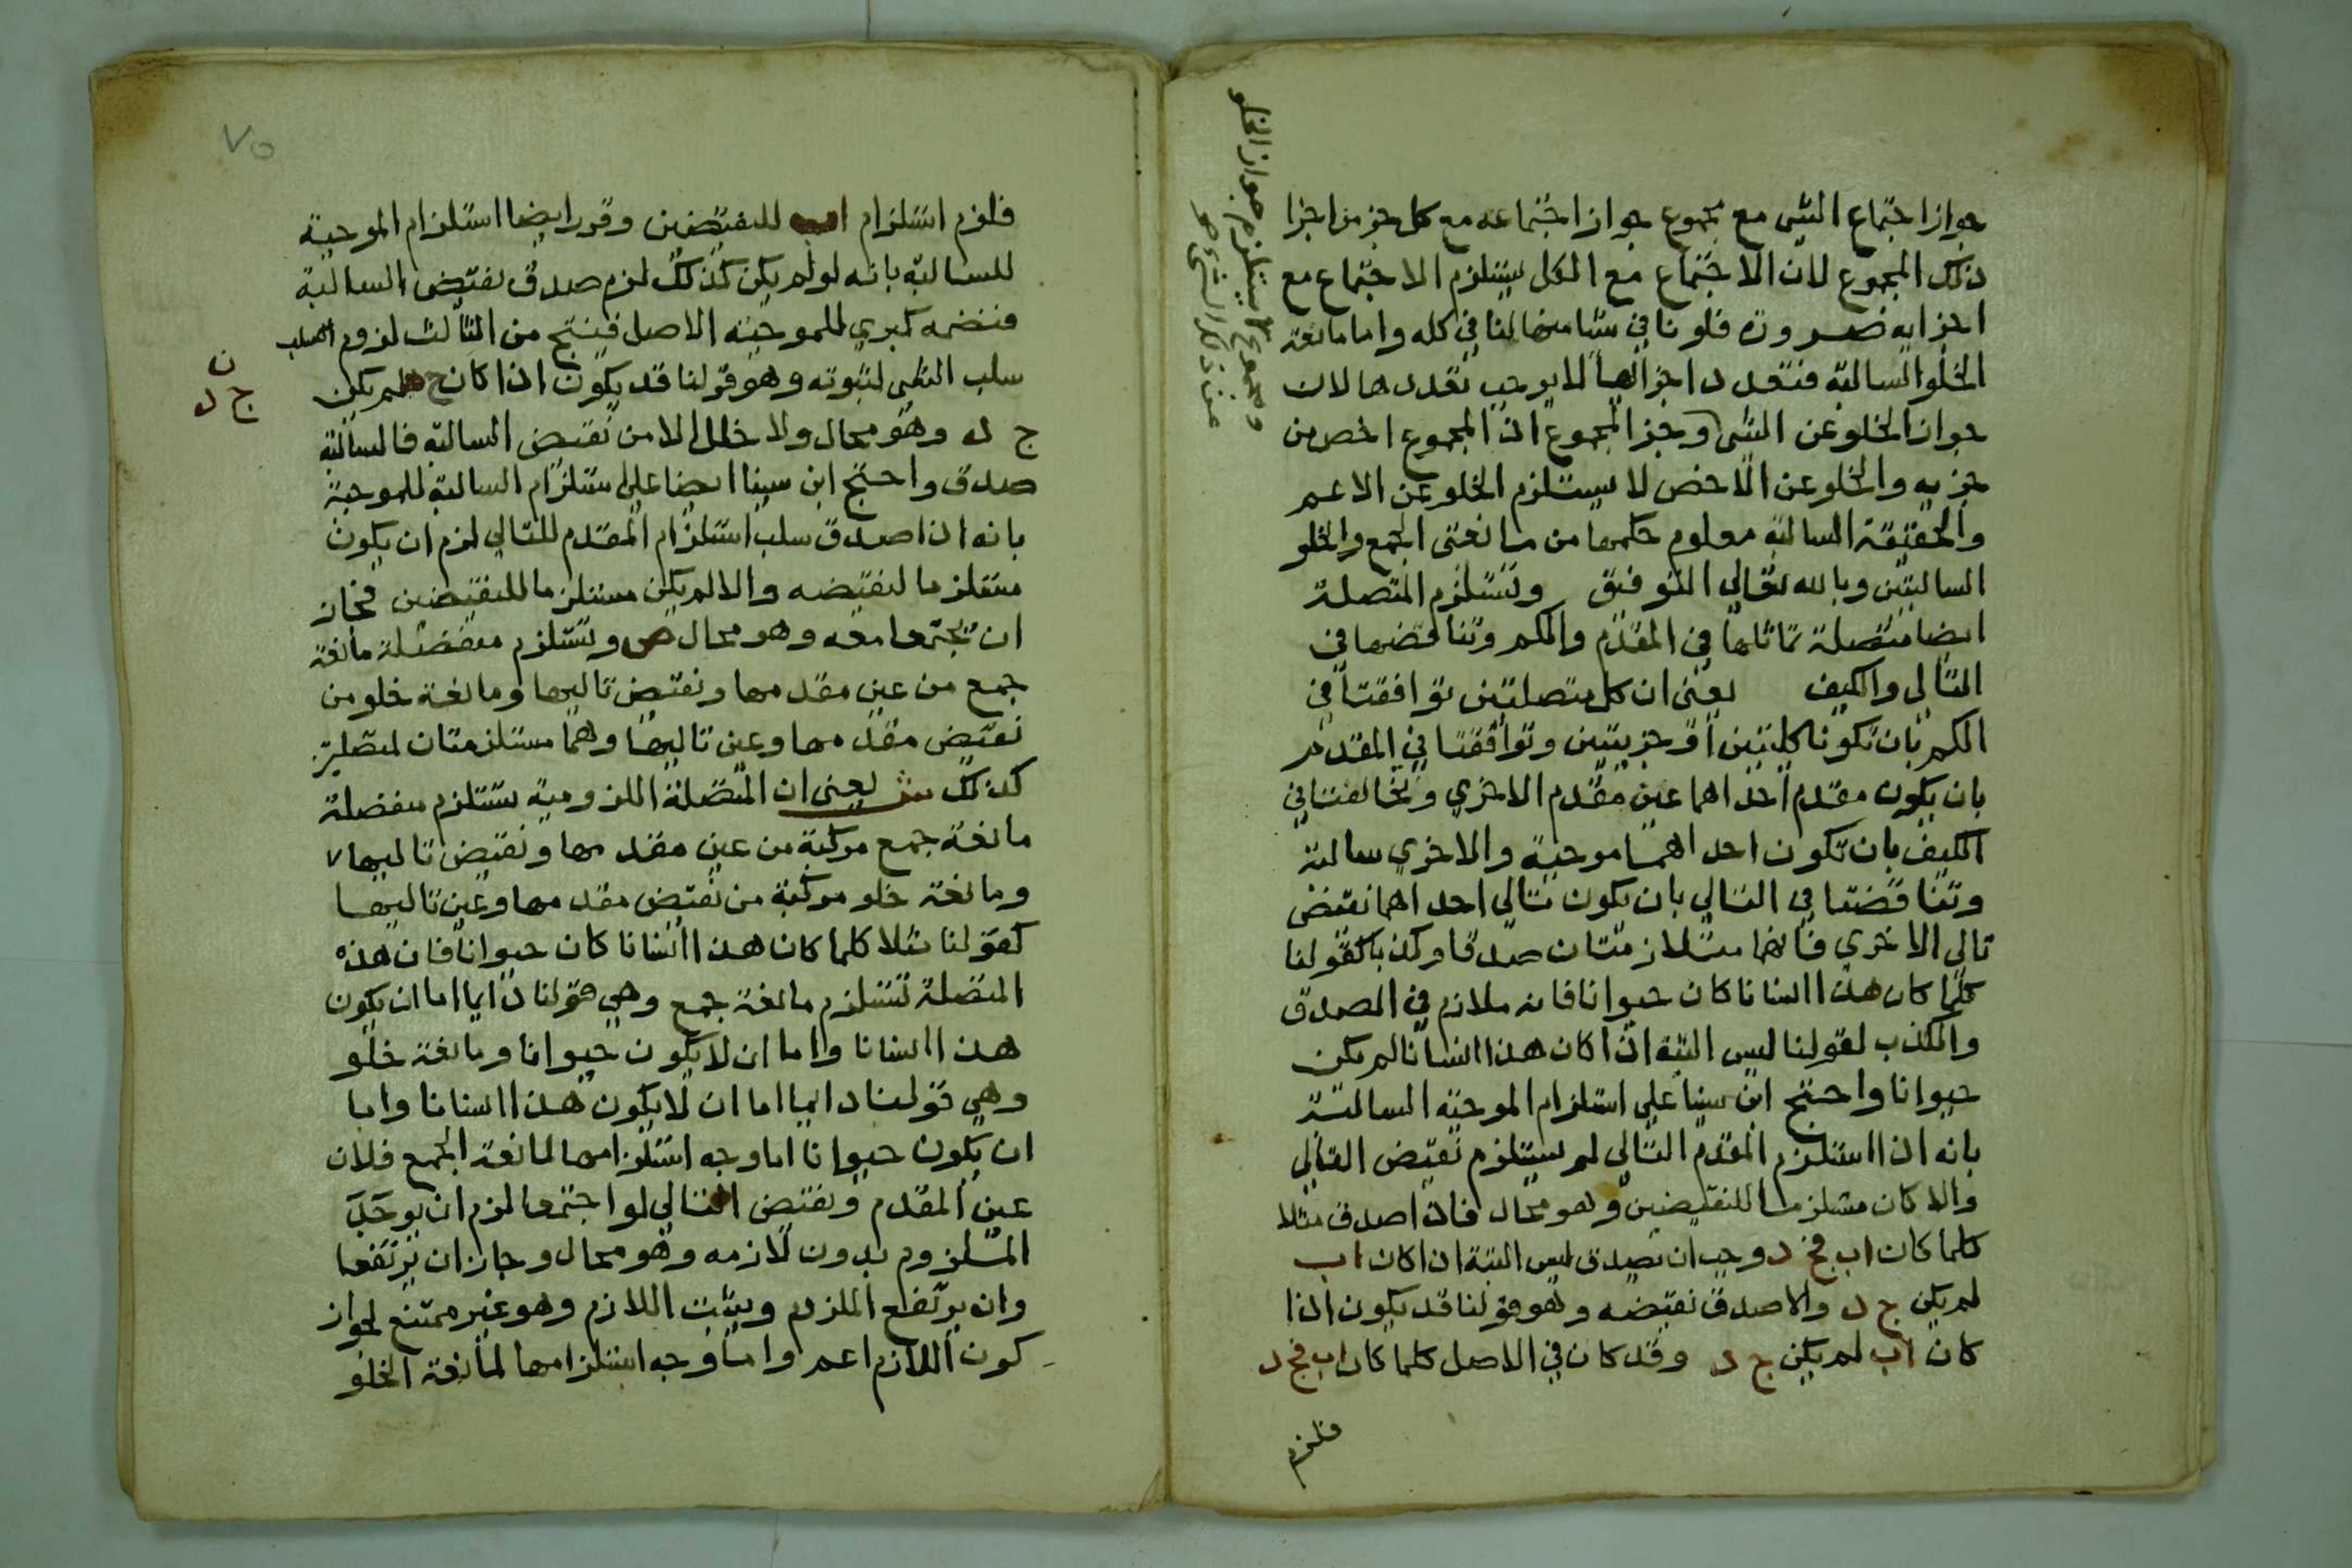 جواز اجتماع الشي مع مجموع جواز اجتماعه مع كل جز من اجزا
ذلك المجموع لان الاجتماع مع الكل يستلزم الاجتماع مع
اجزايه ضرورة فلو نافي شيا منها لنافي كله واما مانعة
الخلو السالبة فتعدد اجزايها لا يوجب تعددها لان
جواز الخلو عن الشي وجز المجموع اذ المجموع اخص من
جزيه والخلو عن الاخص لا يستلزم الخلو عن الاعم
والحقيقة السالبة معلوم حكمها من مانعتي الجمع والخلو
السالبتين وبالله تعالي التوفيق وتستلزم المتصلة
ايضا متصلة تماثلها في المقدم والكم وتناقضها في
التالي والكيف يعني ان كل متصلتين توافقتا في
الكم بان تكونا كليتين او جزييتين وتوافقتا في المقدم
بان يكون مقدم احداهما عين مقدم الاخري وتخالفتا في
الكيف بان تكون احداهما موجبة والاخري سالبة
وتناقضتا في التالي بان يكون تالي احداهما نقيض
تالي الاخري فانهما متلازمتان صدقا وكذبا كقولنا
كلما كان هذا انسانا كان حيوانا فانه ملازم في الصدق
والكذب لقولنا ليس البتة اذا كان هذا انسانا لم يكن
حيوانا واحتج ابن سينا علي استلزام الموجبة السالبة
بانه اذا استلزم المقدم التالي لم يستلزم نقيض التالي
والا كان مستلزما للنقيضين وهو محال فاذا صدق مثلا
كلما كان اب فج د وجب ان يصدق ليس البتة اذا كان اب
لم يكن ج د والا صدق نقيضه وهو قولنا قد يكون اذا
كان اب لم يكن ج د وقد كان في الاصل كلما كان اب فج د
فلزم
ومجموع لا يستلزم جواز الخلو
عن ذلك الشي
فلزم استلزام اب للنقيضين وقرر ايضا استلزام الموجبة
للسالبة بانه لو لم يكن كذلك لزم صدق نقيض السالبة
فنضمه كبري للموجبة الاصل فينتج من الثالث لزوم
سلب الشي لثبوته وهو قولنا قد يكون اذا كان ج لم يكن
ج د
ج د وهو محال ولا خلل الا من نقيض السالبة فالسالبة
صدق واحتج ابن سينا ايضا علي استلزام السالبة للموجبة
بانه اذا صدق سلب استلزام المقدم للتالي لزم ان يكون
مستلزما لنقيضه والا لم يكن مستلزما للنقيضين فجاز
ان يجتمعا معه وهو محال ص وتستلزم منفصلة مانعة
جمع من عين مقدمها ونقيض تاليها ومانعة خلو من
نقيض مقدمها وعين تاليها وهما مستلزمتان لمتصلة
كذلك ش يعني ان المتصلة اللزومية تستلزم منفصلة
مانعة جمع مركبة من عين مقدمها ونقيض تاليها
ومانعة خلو مركبة من نقيض مقدمها وعين تاليها
كقولنا مثلا كلما كان هذا انسانا كان حيوانا فان هذه
المتصلة تستلزم مانعة جمع وهي قولنا دايما اما ان يكون
هذا انسانا واما ان لا يكون حيوانا ومانعة خلو
وهي قولنا دايما اما ان لا يكون هذا انسانا واما
ان يكون حيوانا اما وجه استلزامها لمانعة الجمع فلان
عين المقدم ونقيض التالي لو اجتمعا لزم ان يوجد
الملزوم بدون لازمه وهو محال وجاز ان يرتفعا
وان يرتفع الملزوم ويثبت اللازم وهو غير ممتنع لجواز
كون اللازم اعم واما وجه استلزامها لمانعة الخلو
٧٥